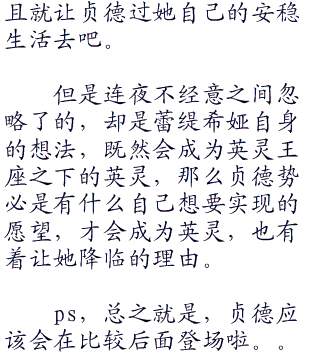 且就让贞德过她自己的安稳
生活去吧。
但是连夜不经意之间忽
略了的，却是蕾缇希娅自身
的想法，既然会成为英灵王
座之下的英灵，那么贞德势
必是有什么自己想要实现的
愿望，才会成为英灵，也有
着让她降临的理由。
ps，总之就是，贞德应
该会在比较后面登场啦。。